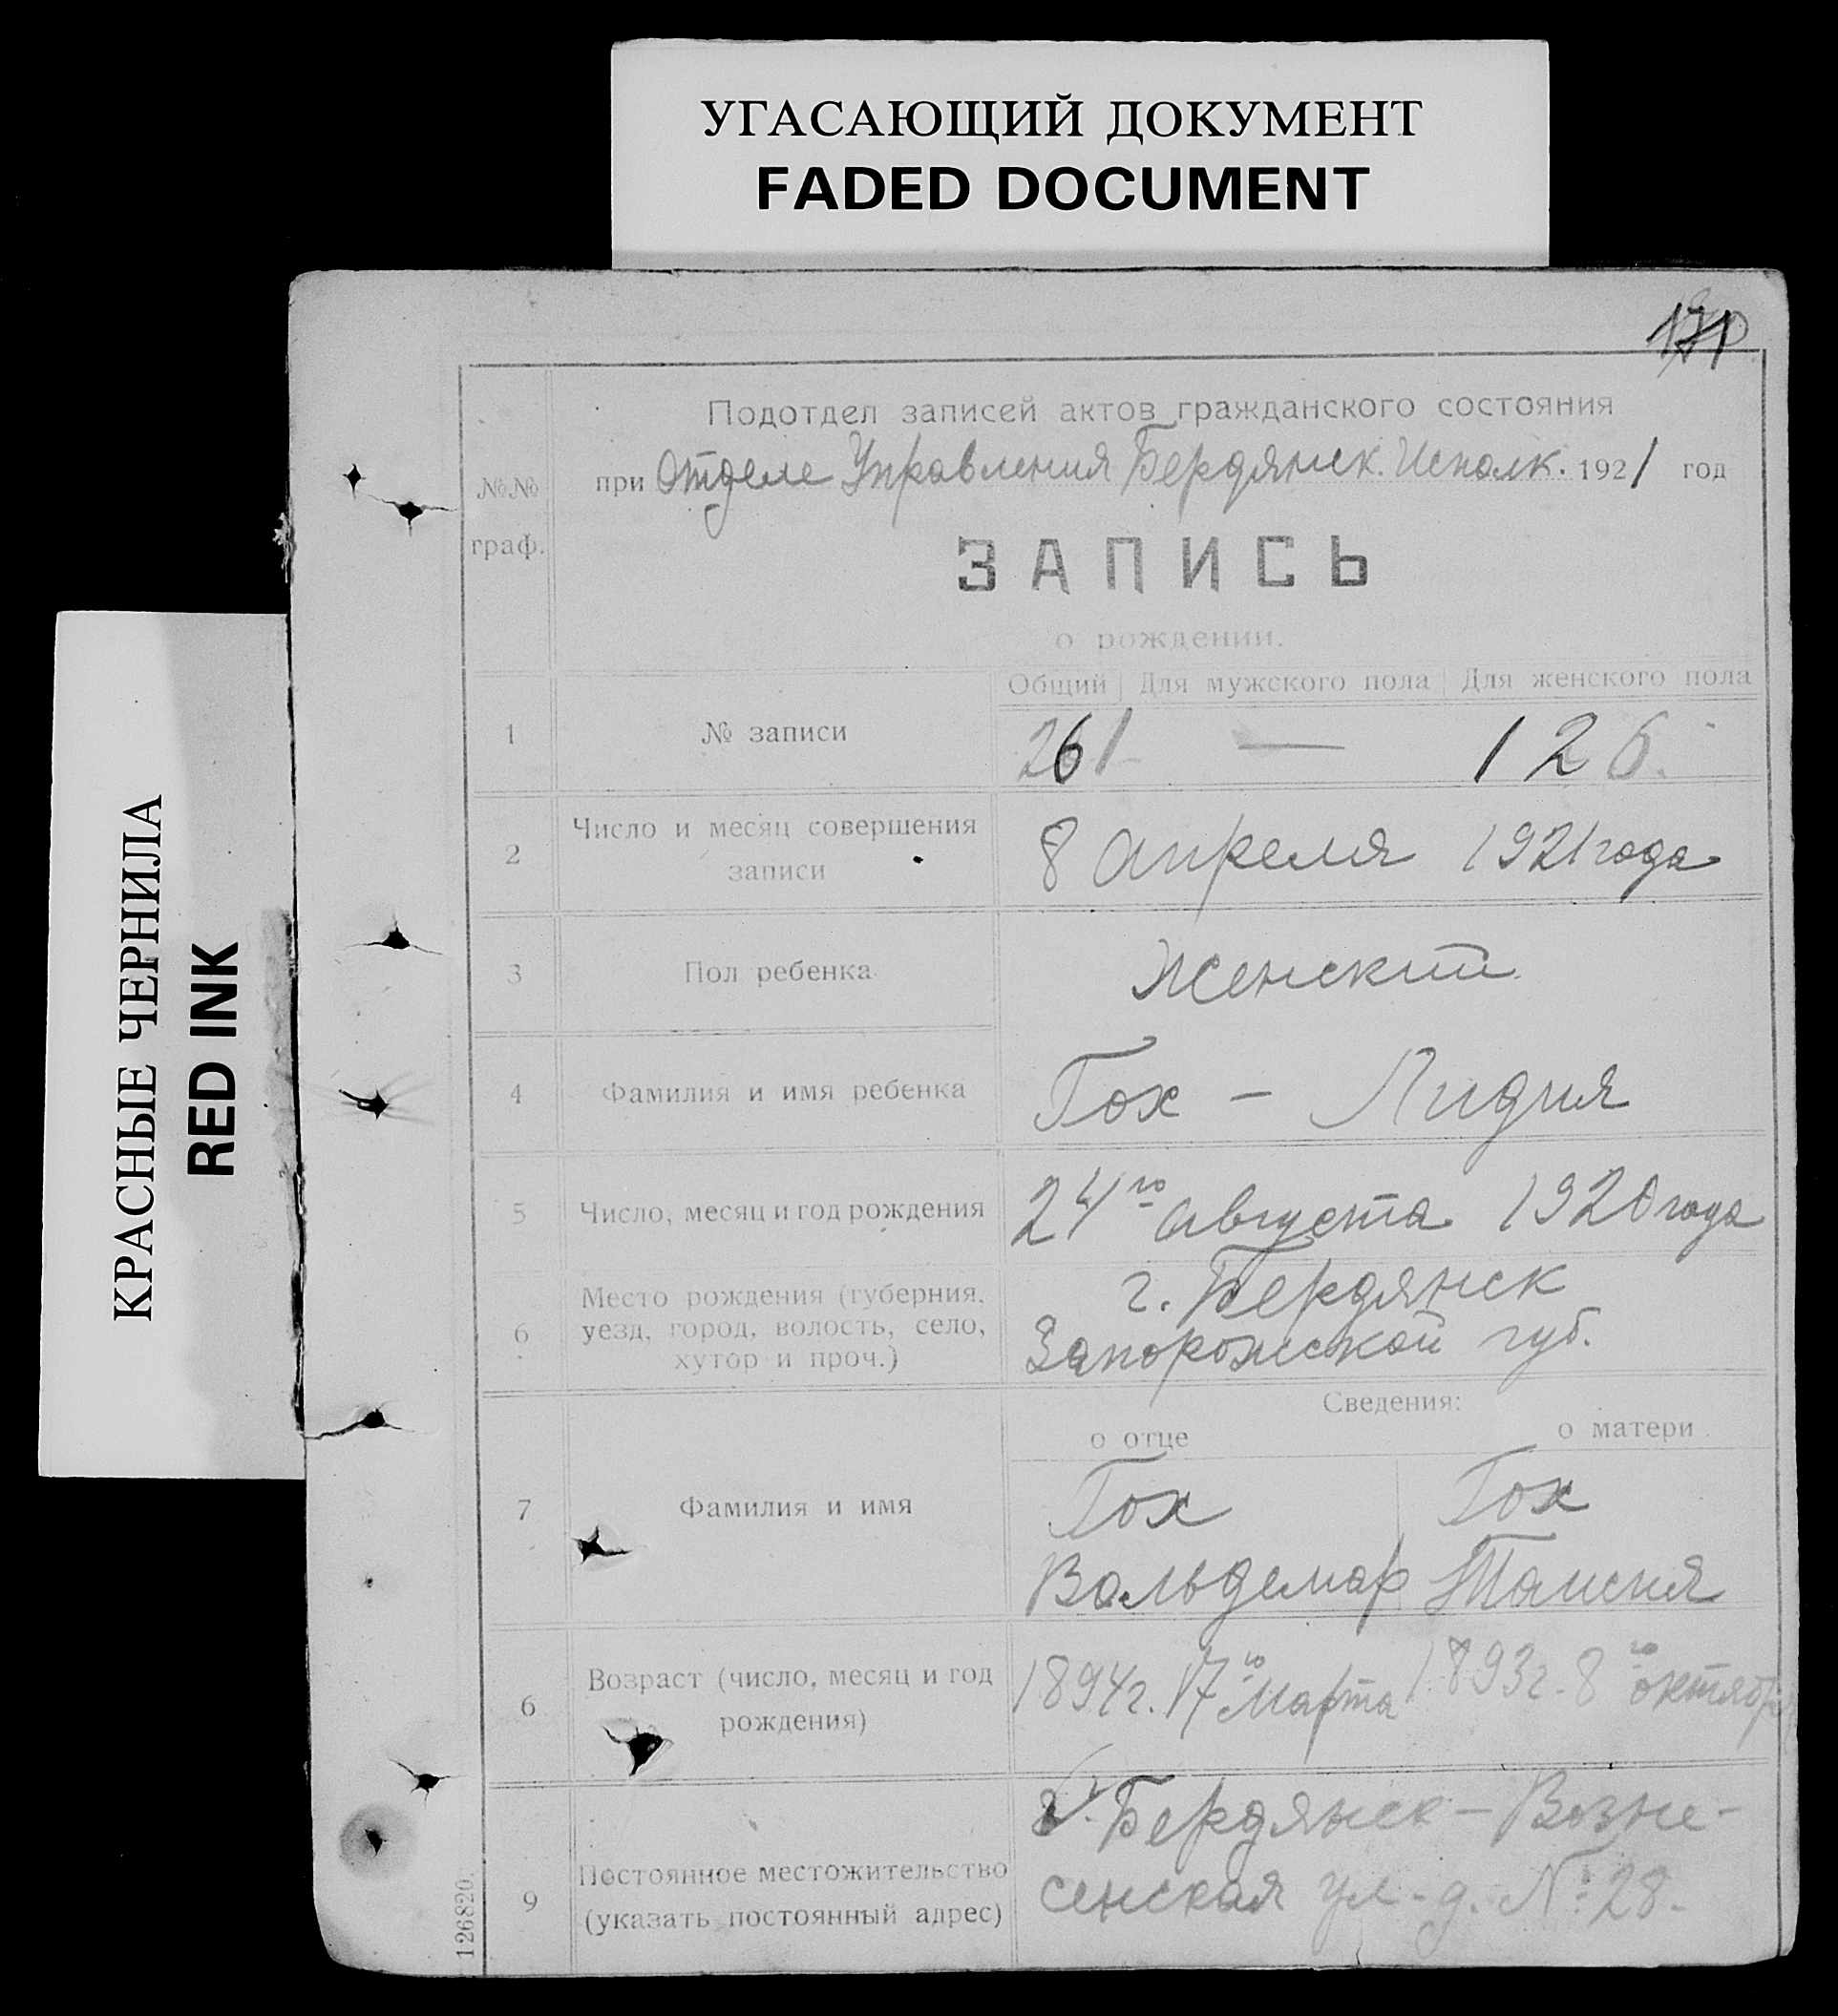 УГАСАЮЩИЙ ДОКУМЕНТ
FADED DOCUMENT
КРАСНЫЕ ЧЕРНИЛА
RED INK
Подотдел записей актов гражданского состояния
№№ граф.
при Отделе Управления Бердянск. Исполк. 1921 год
ЗАПИСЬ
о рождении.
Общий Для мужского пола Для женского пола
1 № записи 261 — 126.
2 Число и месяц совершения записи 8 апреля 1921 года
3 Пол ребенка Женский
4 Фамилия и имя ребенка Гох – Лидия
5 Число, месяц и год рождения 24го августа 1920 года
6 Место рождения (губерния,
уезд, город, волость, село,
хутор и проч.)
г. Бердянск
Запорожской губ.
Сведения:
о отце о матери
7 Фамилия и имя
Гох Гох
Вальдемар
6 Возраст (число, месяц и год
рождения)
1894г. 17го Марта 1893г. 8го октября
9 Постоянное местожительство
(указать постоянный адрес)
г. Бердянск – Возне-
сенская ул. д. № 28.
126820.